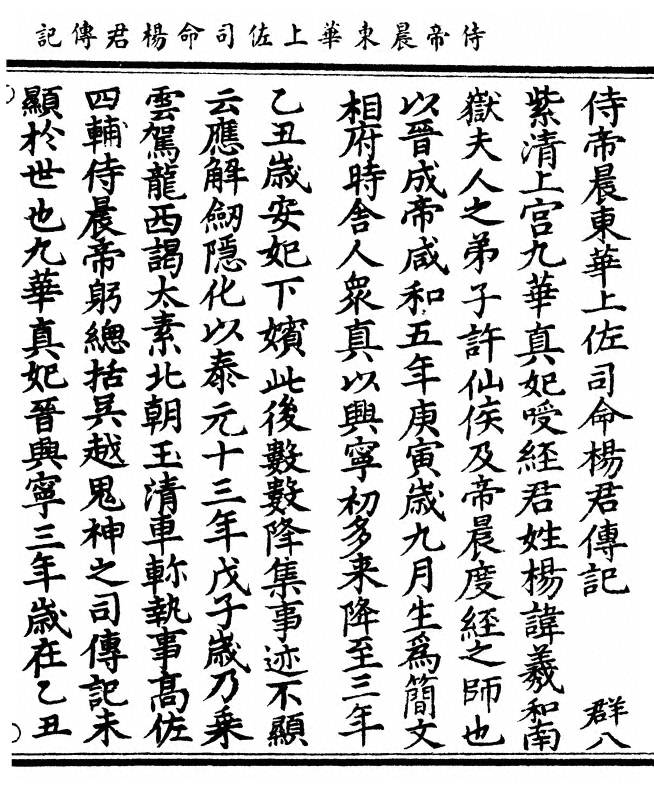 侍帝晨東華上佐司命楊君傳記
侍帝晨東華上佐司命楊君傳記　群八
紫清上宮九華真妃噯経君姓楊諱羲和南
嶽夫人之弟子許仙侯及帝晨度經之師也
以晉成帝咸和五年庚寅歲九月生爲簡文
相府時舍人衆真以興寧初多来降至三年
乙丑歲安妃下嬪此後數數降集事迹不顯
云應解劒隱化以泰元十三年戊子歲乃乗
雲駕龍西謁太素北朝玉清車軿執事髙佐
四輔侍晨帝躬總括吳越鬼神之司傳記未
顯於世也九華真妃晉興寧三年歲在乙丑